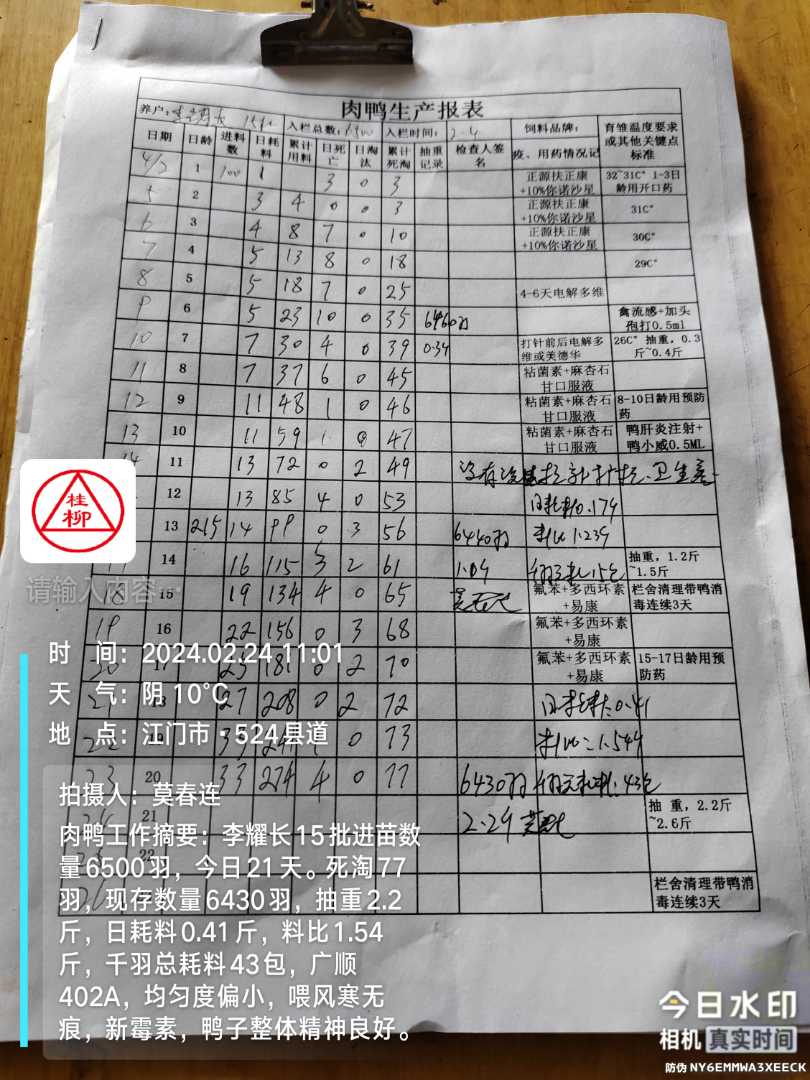 肉鸭生产报表
养户: 15批 入栏总数: 6500 入栏时间: 2.4 饲料品牌: 育雏温度要求或其他关键点标准
日期 日龄 进料数 日耗料 累计用料 日死亡 日淘汰 累计死淘 抽重记录 检查人签名 疫、用药情况记
4/2 1 100 1 3 0 3 正源扶正康+10%你诺沙星 32~31C° 1-3日龄用开口药
5 2 3 4 0 0 3 正源扶正康+10%你诺沙星 31C°
6 3 4 8 7 0 10 正源扶正康+10%你诺沙星 30C°
7 4 5 13 8 0 18 29C°
8 5 5 18 7 0 25 4-6天电解多维
9 6 5 23 10 0 35 6460羽 禽流感+加头孢打0.5ml
10 7 7 30 4 0 39 0.34 打针前后电解多维或美德华 26C° 抽重，0.3斤~0.4斤
11 8 7 37 6 0 45 粘菌素+麻杏石甘口服液
12 9 11 48 1 0 46 粘菌素+麻杏石甘口服液 8-10日龄用预防药
13 10 11 59 1 0 47 粘菌素+麻杏石甘口服液 鸭肝炎注射+鸭小威0.5ML
14 11 13 72 0 2 49
12 13 85 4 0 53 日耗料0.179
13 215 14 99 0 3 56 6440羽 料比1.239
14 16 115 3 2 61 1.09 抽重，1.2斤~1.5斤
18 15 19 134 4 0 65 氟苯+多西环素+易康 栏舍清理带鸭消毒连续3天
19 16 22 156 0 3 68 氟苯+多西环素+易康
20 17 25 181 0 2 70 氟苯+多西环素+易康 15-17日龄用预防药
21 18 27 208 0 2 72 日耗料:0.41
22 19 0 73 料比=1.544
23 20 33 274 4 0 77 6430羽 43包
21 2.29 抽 重，2.2斤~2.6斤
22
栏舍清理带鸭消毒连续3天
桂
柳
请输入内容…
时 间：2024.02.24 11:01
天 气：阴 10℃
地 点：江门市·524县道
拍摄人：莫春连
肉鸭工作摘要：李耀长15批进苗数
量6500羽，今日21天。死淘77
羽，现存数量6430羽，抽重2.2
斤，日耗料0.41斤，料比1.54
斤，千羽总耗料43包，广顺
402A，均匀度偏小，喂风寒无
痕，新霉素，鸭子整体精神良好。
今日水印
相机 真实时间
防伪 NY6EMMWA3XEECK